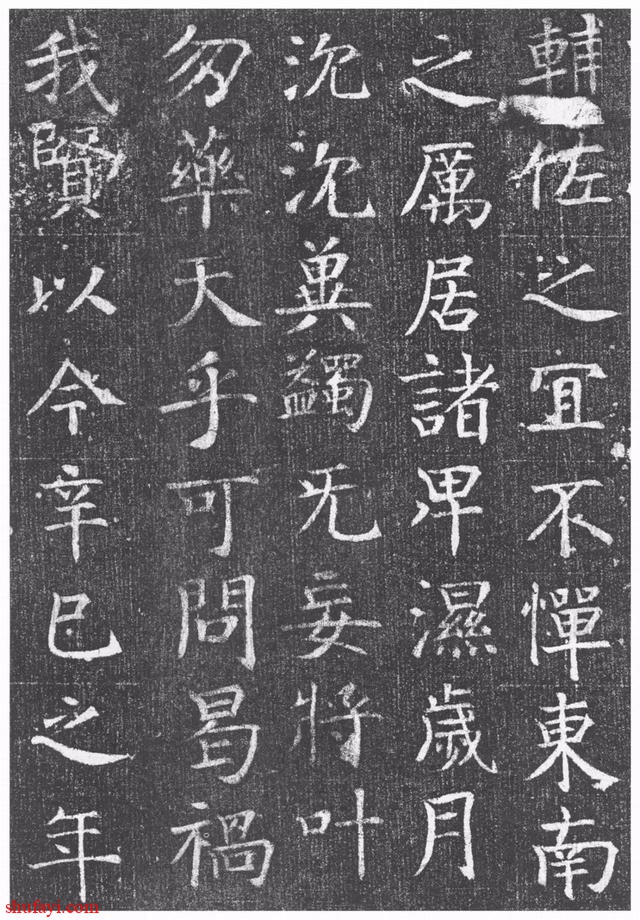 輔佐之宜不憚東南
之厲居諸卑濕歲月
沉沉兾蠲无妄將叶
勿藥天乎可問曷禍
我賢以今辛巳之年
shufayi.com